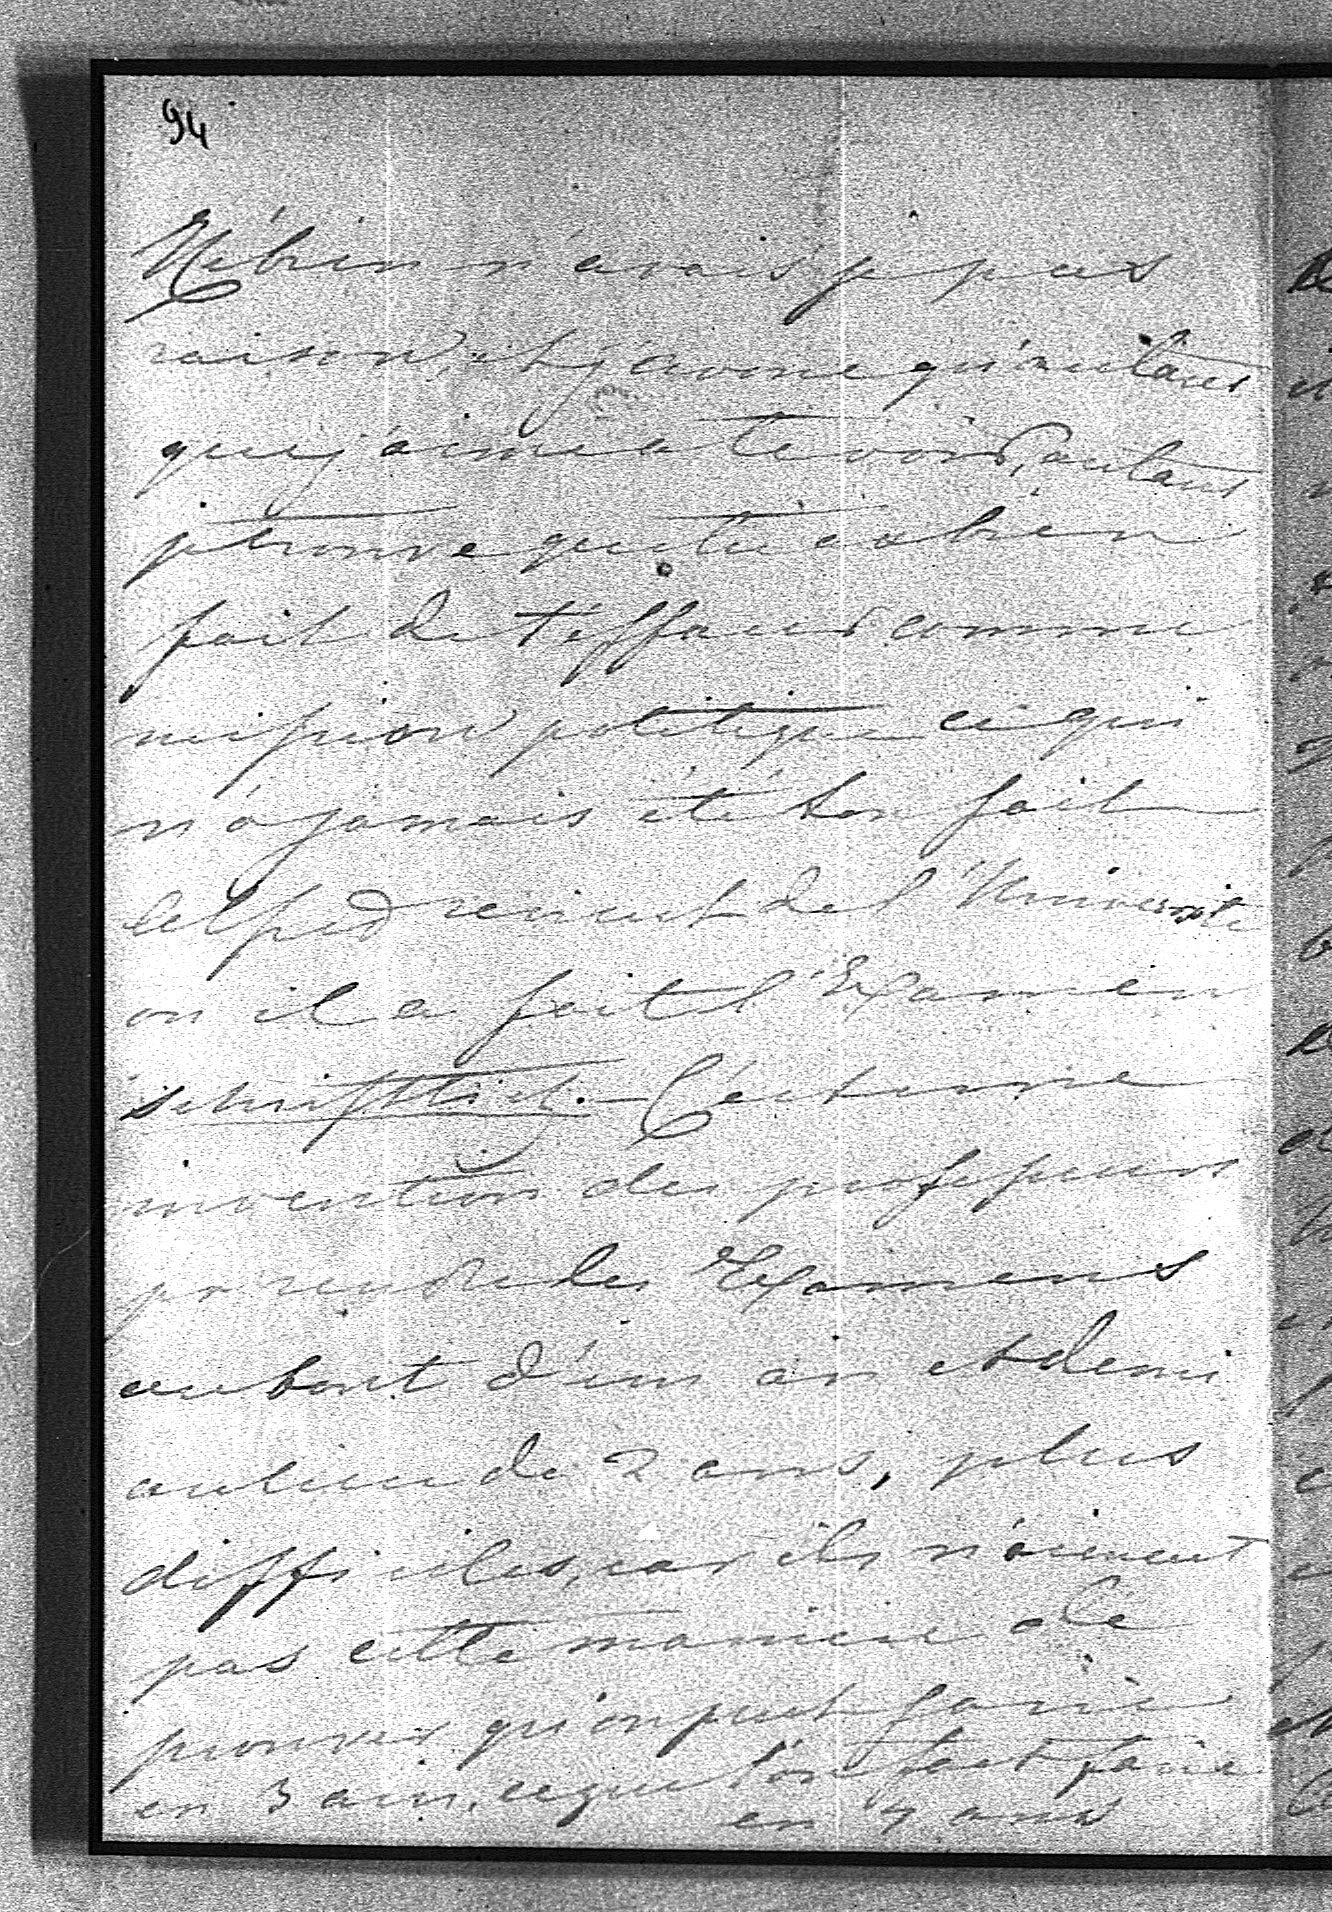 94
Hébien n'avais je pas
raison, et j'avoue qu'autant
que j'aime a te voir, autant
je trouve que tu a bien
fait de t'effacer comme
mission politique ce qui
n'a jamais été ton fait
revient de l'Université
on il a fait l'Examen
schriftlich. C'est une
invention des professeurs
prendre les Examens
au bout d'un an et demi
au lieu de 2 ans, plus
difficiles, car ils n'aiment
pas cette maniere de
prouver qu'on peut faire
en 3 ans, ce que l'on fait faire
en 4 ans